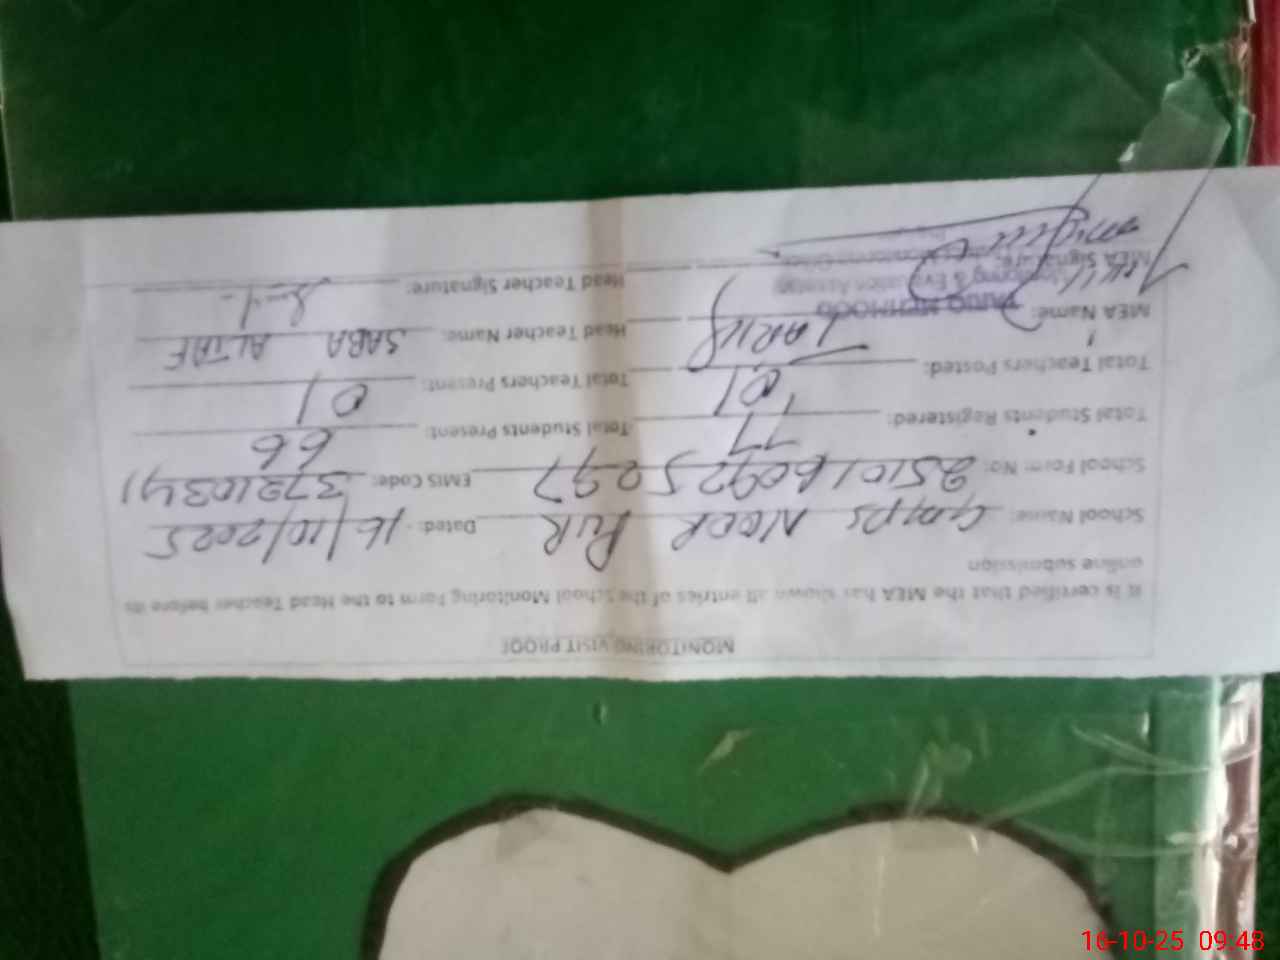 MONITORING VISIT PROOF
It is certified that the MEA has shown all entries of the School Monitoring Form to the Head Teacher before its
online submission
School Name: GMPS NOOR PUR Dated: 16/10/2025
School Form No: 2510160925097 EMIS Code: 37210341
Total Students Registered: 77 Total Students Present: 66
Total Teachers Posted: 01 Total Teachers Present: 01
MEA Name: TARIQ Head Teacher Name: SABA ALTAF
TARIQ MEHMOOD
Monitoring & Evaluation Assistant
MEA Signature: Head Teacher Signature:
16-10-25 09:48